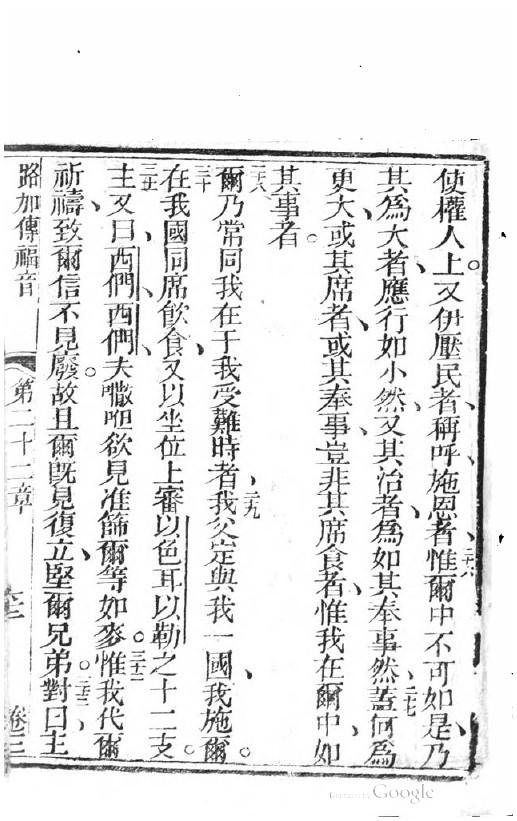 使權人上。又伊壓民者、稱呼施恩者、二六惟爾中不可如是、乃
其為大者、應行如小然、又其治者、為如其奉事然、二七蓋何為
更大、或其席者、或其奉事、豈非其席食者、惟我在爾中、如
其事者。
二八爾乃常同我在于我受難時者、二九我父定與我一國、我施爾。
三十在我國同席飲食、又以坐位上審以色耳以勒之十二支。
三一主又曰、西們西們、夫㘔呾欲見准篩爾等如麥。三二惟我代爾
祈禱、致爾信不見廢。故且爾旣見復立、堅爾兄弟。三三對曰、主
路加傳福音 第二十二章 卷三
Digitized by Google